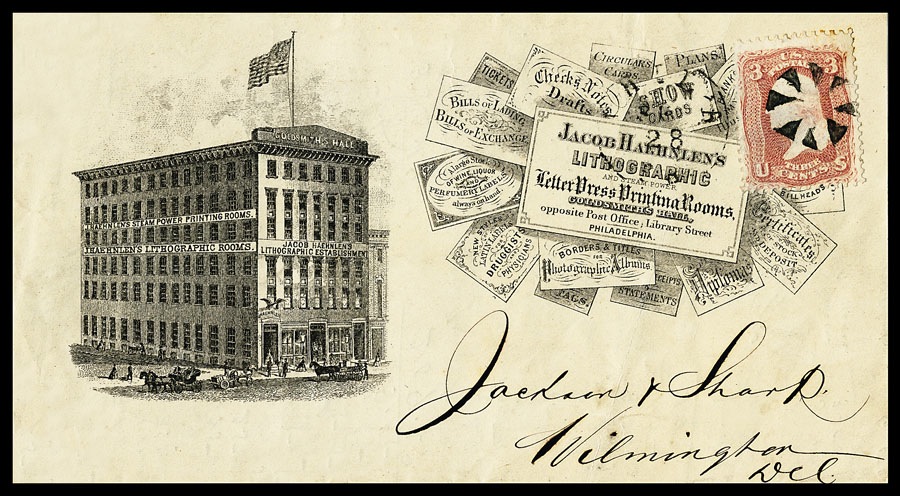 GOLDSMITHS HALL
J. HAEHNLEN'S STEAM POWER PRINTING ROOMS.
J. HAEHNLEN'S LITHOGRAPHIC ROOMS.
JACOB HAEHNLEN'S
LITHOGRAPHIC ESTABLISHMENT
TICKETS
Checks, Notes
Drafts
CIRCULARS
CARDS.
PLANS
SHOW
CARDS
BILLS OF LADING
BILLS OF EXCHANGE
28
A large Stock
OF WINE, LIQUOR
AND
PERFUMERY LABELS
always on hand.
JACOB HAEHNLEN'S
LITHOGRAPHIC
AND STEAM POWER
Letter Press Printing Rooms,
GOLDSMITHS HALL,
opposite Post Office, Library Street
PHILADELPHIA.
3 3
U.S.
POSTAGE
THREE
U CENTS S
BILL HEADS
Certificates
OF
STOCK
DEPOSIT
DRUGGISTS
PHYSICIANS
BORDERS & TITLES
FOR
Photographic Albums
STATEMENTS
Diplomas
Jackson & Sharp.
Wilmington
Del.